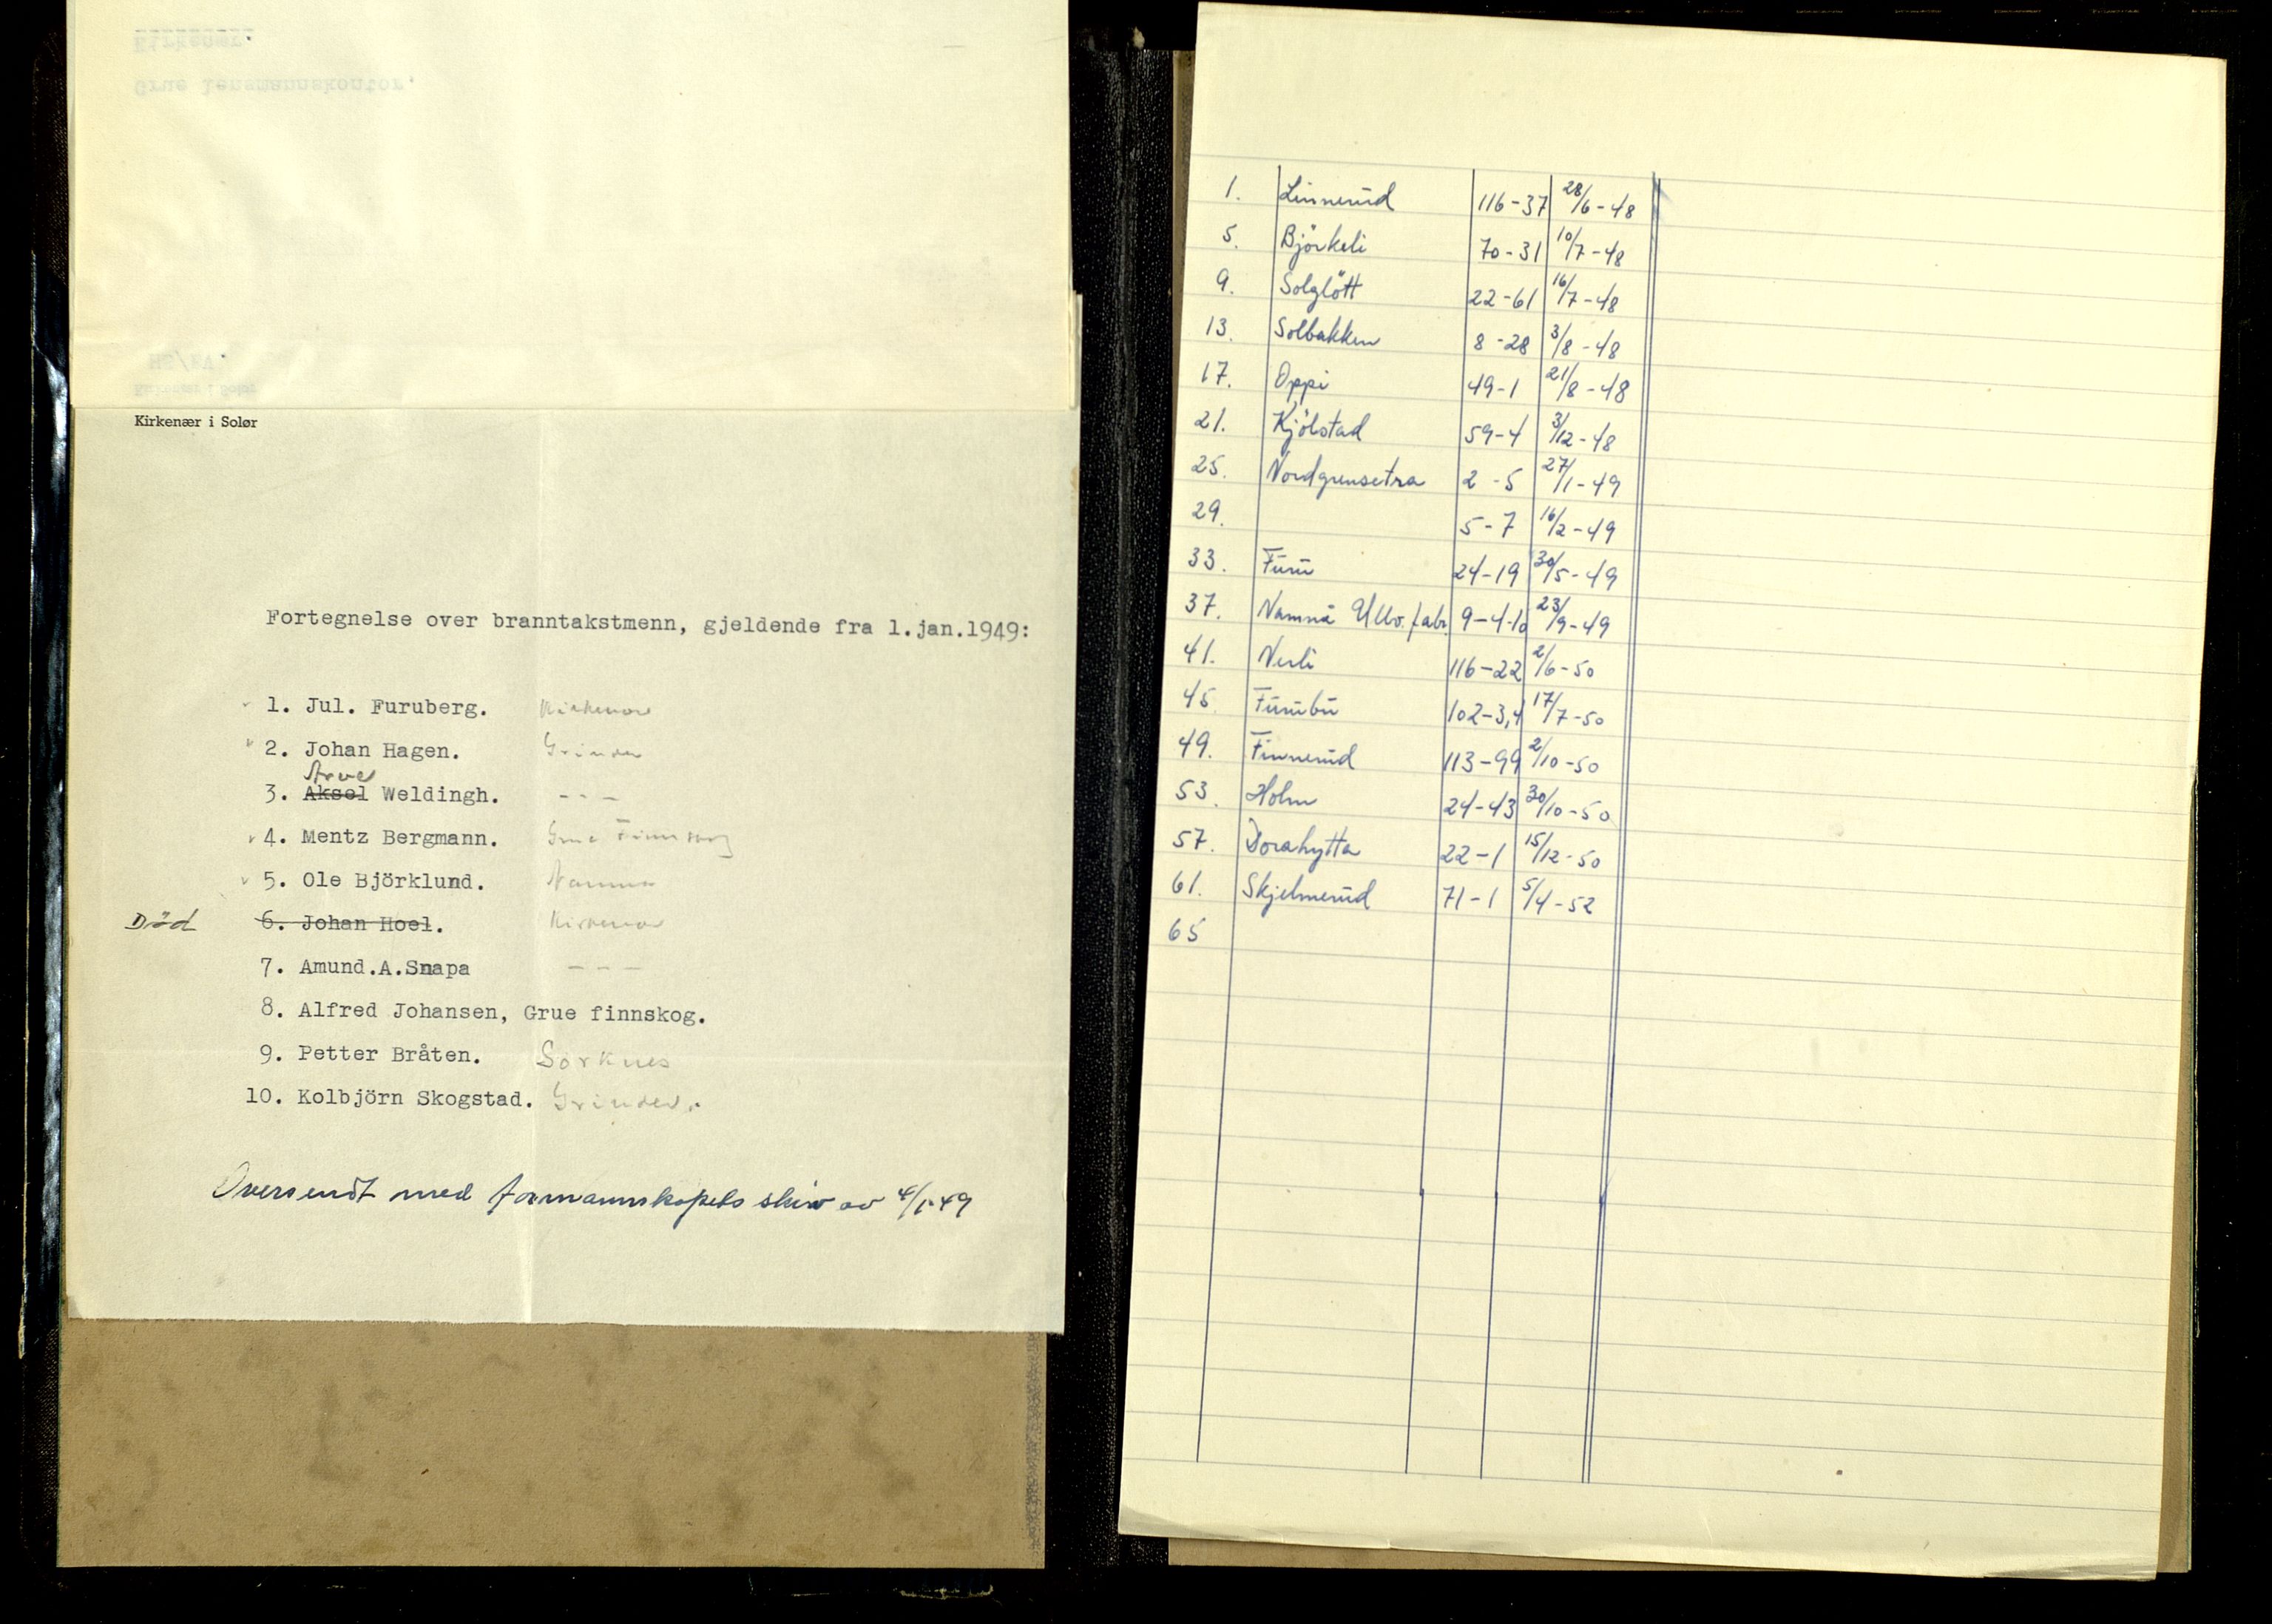 Kirkenær.
Grue lensmannskontor.
HS/EV.
Kirkenær i Solør
Kirkenær i Solør
Fortegnelse over branntakstmenn, gjeldende fra 1.jan.1949:
1. Jul. Furuberg. Kirkenær
2. Johan Hagen. Grinder
Arve
3. Aksel Weldingh. - - -
4. Mentz Bergmann. Grue Finnskog
5. Ole Björklund. Namnå
Död 6. Johan Hoel. Kirkenær
7. Amund.A.Snapa - - -
8. Alfred Johansen, Grue finnskog.
9. Petter Bråten. Sorknes
10. Kolbjörn Skogstad. Grinder.
Oversendt med formannskapets skiv av 4/1-49
1. Linnerud 116-37 28/6-48
5. Björkeli 70-31 10/7-48
9. Solglött 22-61 16/7-48
13. Solbakken 8-28 3/8-48
17. Oppi 49-1 21/8-48
21. Kjölstad 59-4 3/12-48
25. Nordgrensetra 2-5 27/1-49
29. 5-7 16/2-49
33. Furu 24-19 30/5-49
37. Namnå Ullv. fabr. 9-4-10 23/9-49
41. Nerli 116-22 2/6-50
45. Furubu 102-3,4 17/7-50
49. Finnerud 113-99 2/10-50
53. Holm 24-43 30/10-50
57. Dorahytta 22-1 15/12-50
61. Skjelmerud 71-1 5/4-52
65